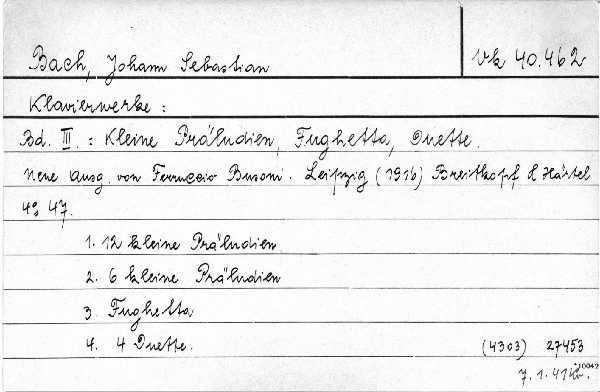 Bach, Johann Sebastian
Vk 40.462
Klavierwerke :
Bd. III. : Kleine Präludien, Fughetta, Duette.
Neue Ausg. von Ferruccio Busoni. Leipzig (1916) Breitkopf & Härtel
4° 47.
1. 12 kleine Präludien
2. 6 kleine Präludien
3. Fughetta
4. 4 Duette.
(4303) 27453
7. 1. 41